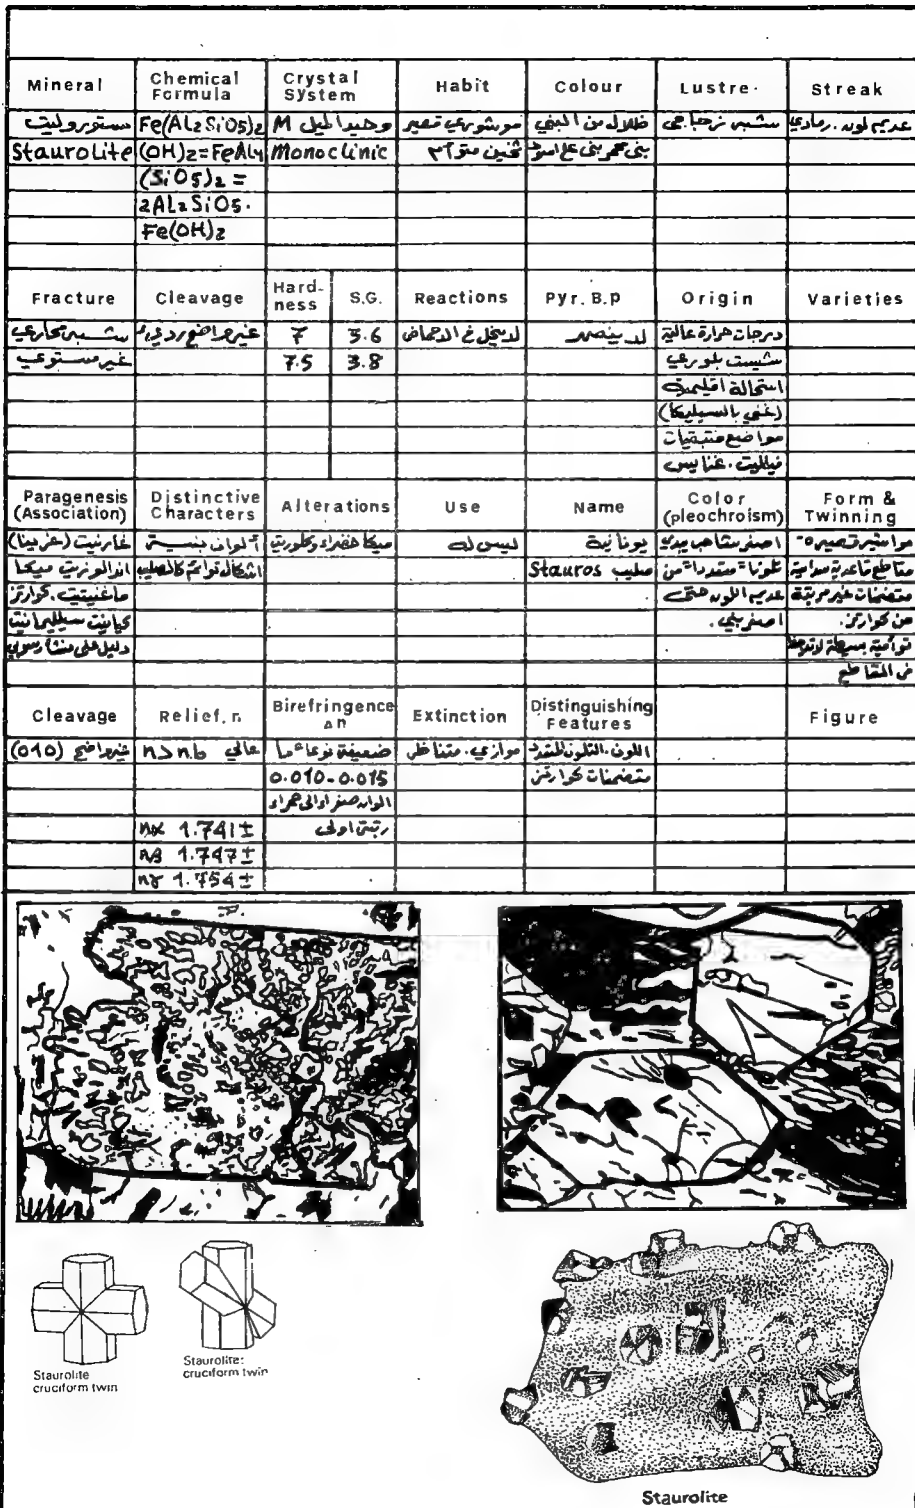 Mineral Chemical Formula Crystal System Habit Colour Lustre Streak
ستوروليت Fe(Al2SiO5)2 وحيد الميل M موشوري قصير ظلال من البني شبه زجاجي عديم لون. رمادي
Staurolite (OH)2=FeAl4 Monoclinic ثخين متوأم بني محمر بني على اسود
(SiO5)2 =
2Al2SiO5.
Fe(OH)2
Fracture Cleavage Hardness S.G. Reactions Pyr. B.p Origin Varieties
شبه محاري غير واضح رديء 7 3.6 لا ينحل في الاحماض لا ينصهر درجات حرارة عالية
غير مستوي 7.5 3.8 شيست بلوري
استحالة اقليمية
(غني بالسيليكا)
مواضع
فيلليت. غنايس
Paragenesis (Association) Distinctive Characters Alterations Use Name Color (pleochroism) Form & Twinning
غارنيت ألوان بنية ميكا خضراء وكلوريت ليس له يونانية اصفر شاحب يبدي مواشير قصيرة
اندالوزيت ميكا اشكال توائم كالصليب صليب Stauros تلونا متعددا من مقاطع قاعدية سداسية
ماغنيتيت. كوارتز عديم اللون حتى متضمنات غير مرتبة
كيانيت سيلليمانيت اصفر بني. من كوارتز.
دليل على منشأ رسوبي توأمية بسيطة لا تلاحظ
في المقاطع
Cleavage Relief, n Birefringence Δn Extinction Distinguishing Features Figure
غير واضح (010) عالي n>nb ضعيفة نوعا ما موازي. متناظر اللون. التلون المتعدد
0.010-0.015 متضمنات كوارتز
الوان صفراء الى حمراء
nα 1.741± رتبة اولى
nβ 1.747±
nγ 1.754±
Staurolite
cruciform twin
Staurolite:
cruciform twin
Staurolite